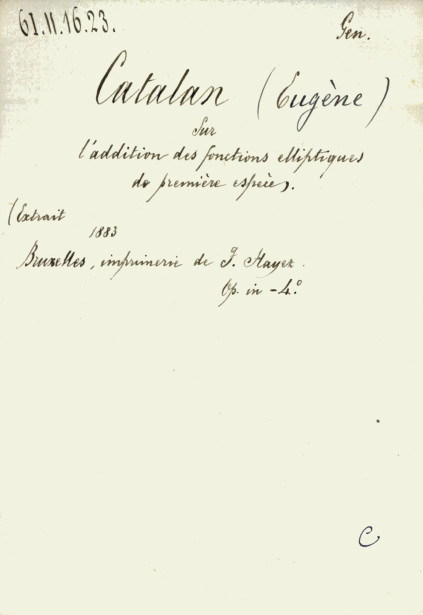 61.11.16.23.
Gen.
Catalan (Eugène)
Sur
l'addition des fonctions elliptiques
de première espèce.
(Extrait
1883
Bruxelles, imprimerie de F. Hayez.
Op. in-4.°
C